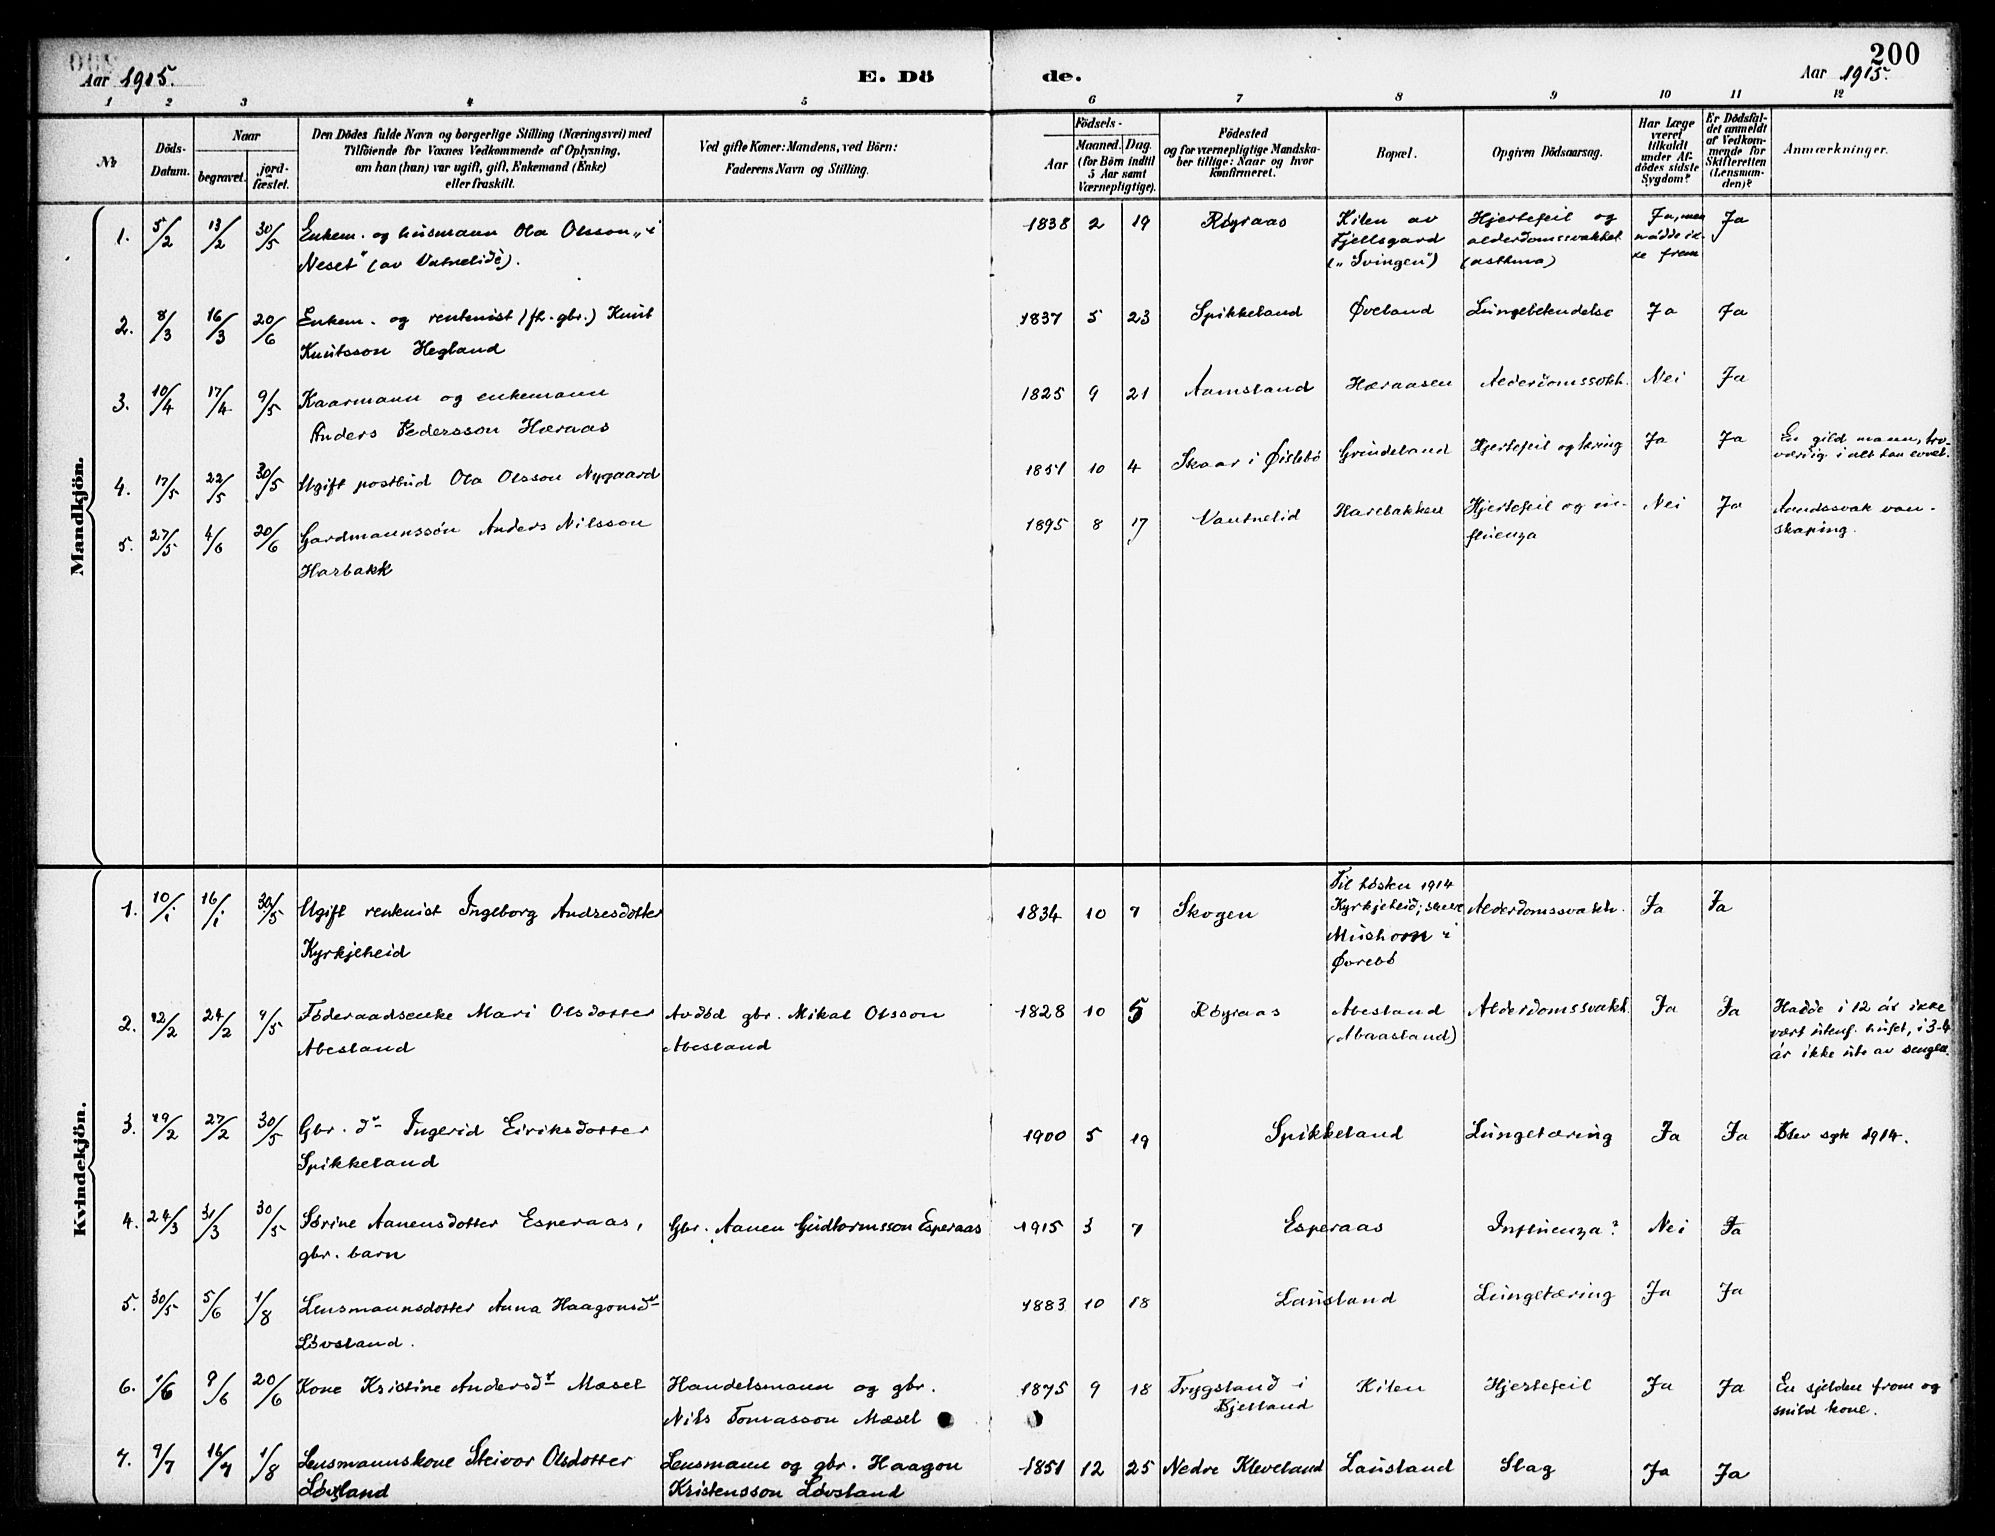 Aar 1915.
E. Dö
de.
Aar 1915.
200
1 2 3 4 5 6 7 8 9 10 11 12
No
Döds-Datum.
Naar
begravet.
jord-fæstet.
Den Dödes fulde Navn og borgerlige Stilling (Næringsvei) med
Tilföiende for Voxnes Vedkommende af Oplysning,
om han (hun) var ugift, gift, Enkemand (Enke)
eller fraskilt.
Ved gifte Koner: Mandens, ved Börn:
Faderens Navn og Stilling.
Födsels-
Aar
Maaned. Dag.
(for Börn indtil
5 Aar samt
Værnepligtige).
Födested
og for værnepligtige Mandska-
ber tillige: Naar og hvor
konfirmeret.
Bopæl.
Opgiven Dödsaarsag.
Har Læge
været
tilkaldt
under Af-
dödes sidste
Sygdom?
Er Dödsfal-
det anmeldt
af Vedkom-
mende for
Skifteretten
(Lensman-
den)?
Anmærkninger.
Mandkjön.
1. 5/2 13/2 30/5 Enkem. og husmann Ola Olsson „i
Neset" (av Vatnelide).
1838 2 19 Røyraas
Kilen av
Fjellsgard
(„Svingen")
Hjertefeil og
alderdomssvakhet
(asthma)
Ja, men
nådde ik-
ke frem
Ja
2. 8/3 16/3 20/6 Enkem. og rentenist (fh. gbr.) Knut
Knutsson Hegland
1837 5 23 Spikkeland Øveland Lungebetendelse Ja Ja
3. 10/4 17/4 9/5 Kaarmann og enkemann
Anders Pedersson Hæraas
1825 9 21 Aamsland Hæraasen Alderdomssvkh. Nei Ja
4. 17/5 22/5 30/5 Ugift postbud Ola Olsson Nygaard
1851 10 4 Skaar i Øislebø Grindeland Hjertefeil og tæring Ja Ja
En gild mann, tro-
værdig i alt han
5. 27/5 4/6 20/6 Gardmannssøn Anders Nilsson
Harbakk
1895 8 17 Vantnelid Harebakken
Hjertefeil og in-
fluenza
Nei Ja
Aandssvak van-
skaping.
Kvindekjön.
1. 10/1 16/1 30/5 Ugift rentenist Ingeborg Andresdotter
Kyrkjeheid
1834 10 7 Skogen
Til høsten 1914
Kyrkjeheid;
Mushom i
Øvrebø
Alderdomssvakh. Ja Ja
2. 12/2 24/2 9/5 Føderaadsenke Mari Olsdotter
Abesland
Avdød gbr. Mikal Olsson
Abesland
1828 10 5 Røyraas
Abesland
(Abaasland)
Alderdomssvakh. Ja Ja
Hadde i 12 år ikke
vært utenf. huset, i 3-4
år ikke ute av sengen.
3. 19/2 27/2 30/5 Gbr. dr Ingerid Eiriksdotter
Spikkeland
1900 5 19 Spikkeland Lungetæring Ja Ja Blev syk 1914.
4. 24/3 31/3 30/5 Sørine Aanensdotter Esperaas,
gbr. barn
Gbr. Aanen Gudtormsson Esperaas
1915 3 7 Esperaas Influenza? Nei Ja
5. 30/5 5/6 1/8 Lensmannsdotter Anna Haagonsdr
Løvsland.
1883 10 18 Lausland Lungetæring Ja Ja
6. 1/6 9/6 20/6 Kone Kristine Andersdr Mæsel
Handelsmann og gbr.
Nils Tomasson Mæsel
1875 9 18 Trygsland i
Bjelland
Kilen Hjertefeil Ja Ja
En sjelden from og
snild kone.
7. 9/7 16/7 1/8 Lensmannskone Steivor Olsdotter
Løvsland
Lensmann og gbr. Haagon
Kristensson Løvsland
1851 12 25 Nedre Kleveland Lausland Slag Ja Ja